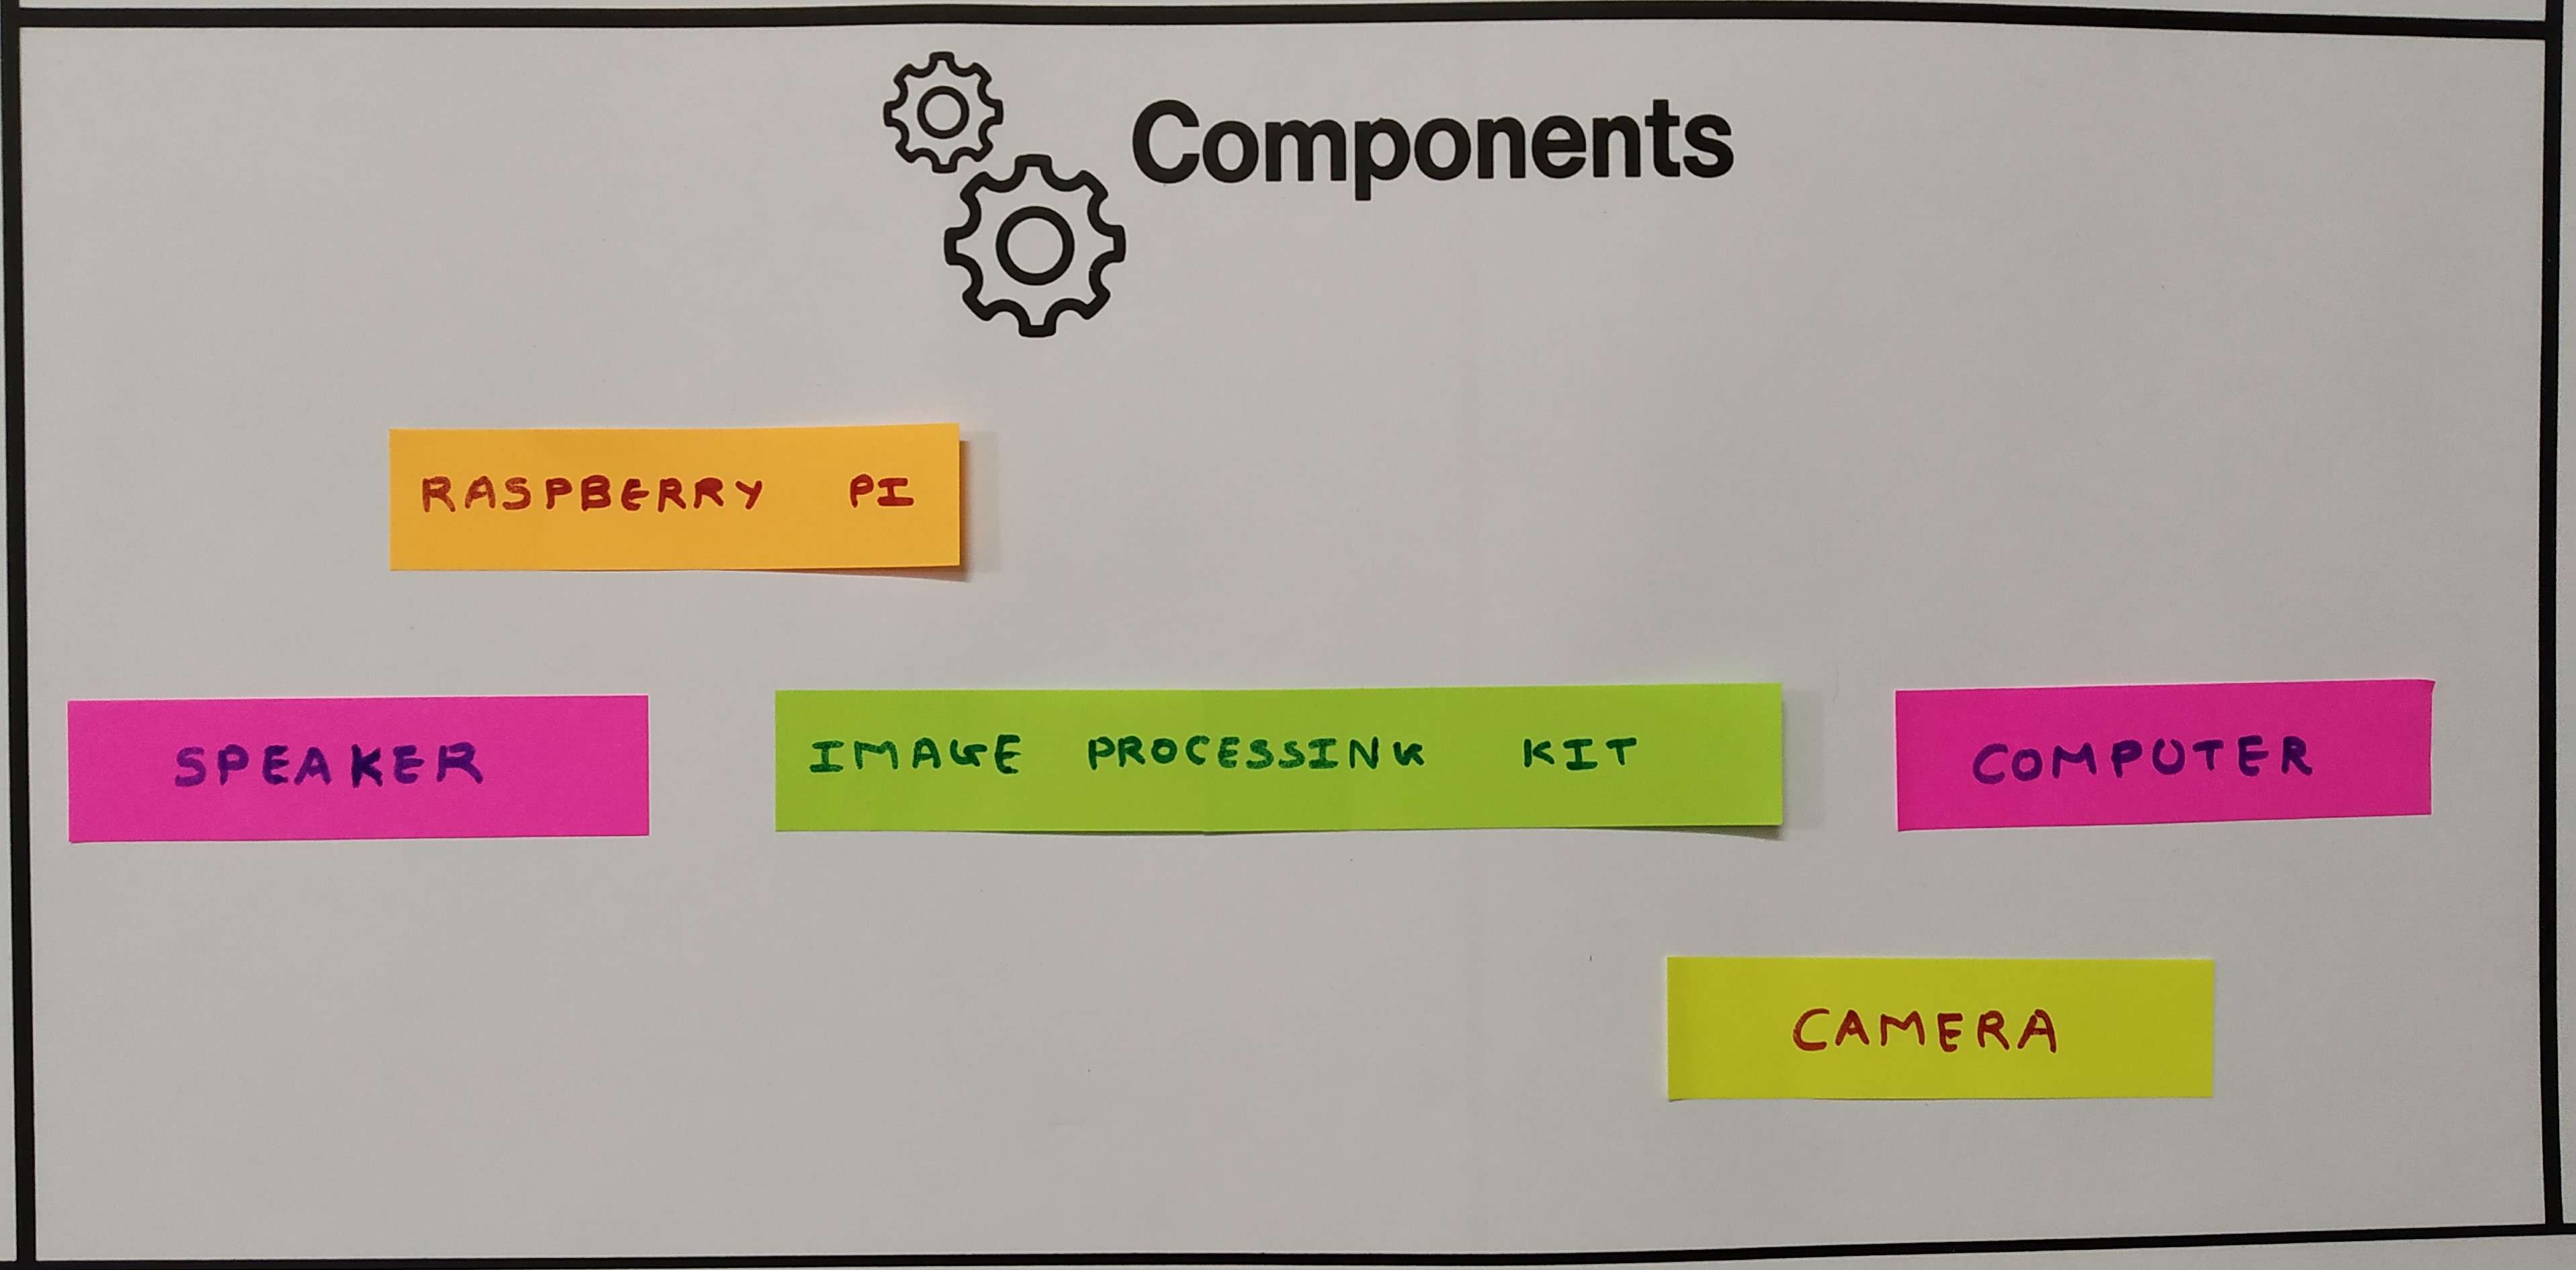 Components
RASPBERRY PI
SPEAKER
IMAGE PROCESSING KIT
COMPUTER
CAMERA